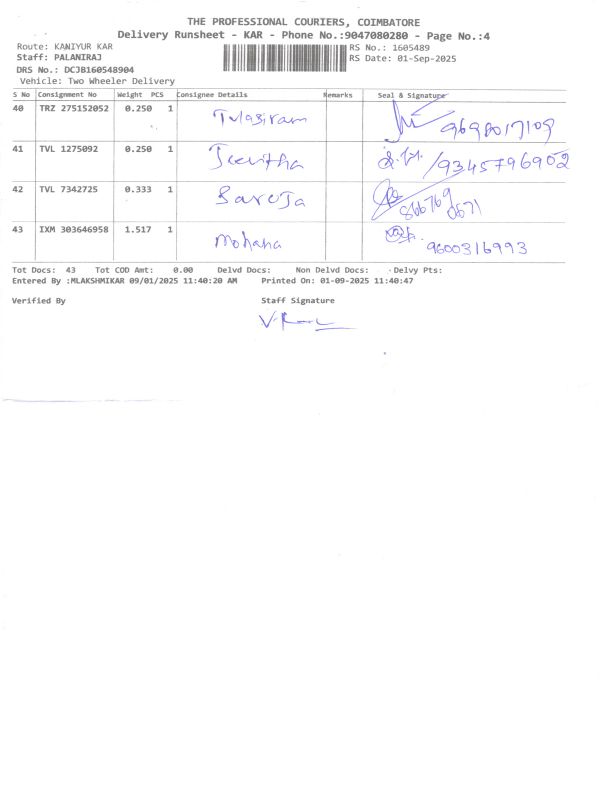 THE PROFESSIONAL COURIERS, COIMBATORE
Delivery Runsheet - KAR - Phone No.:9047080280 - Page No.:4
Route: KANIYUR KAR
RS No.: 1605489
Staff: PALANIRAJ
RS Date: 01-Sep-2025
DRS No.: DCJB160548904
Vehicle: Two Wheeler Delivery
S No Consignment No Weight PCS Consignee Details Remarks Seal & Signature
40 TRZ 275152052 0.250 1 Tulasiram 9698017109
41 TVL 1275092 0.250 1 Jeevitha /9345796902
42 TVL 7342725 0.333 1 Saroja 866769
0671
43 IXM 303646958 1.517 1 Mohana 9600316993
Tot Docs: 43 Tot COD Amt: 0.00 Delvd Docs: Non Delvd Docs: Delvy Pts:
Entered By :MLAKSHMIKAR 09/01/2025 11:40:20 AM Printed On: 01-09-2025 11:40:47
Verified By Staff Signature